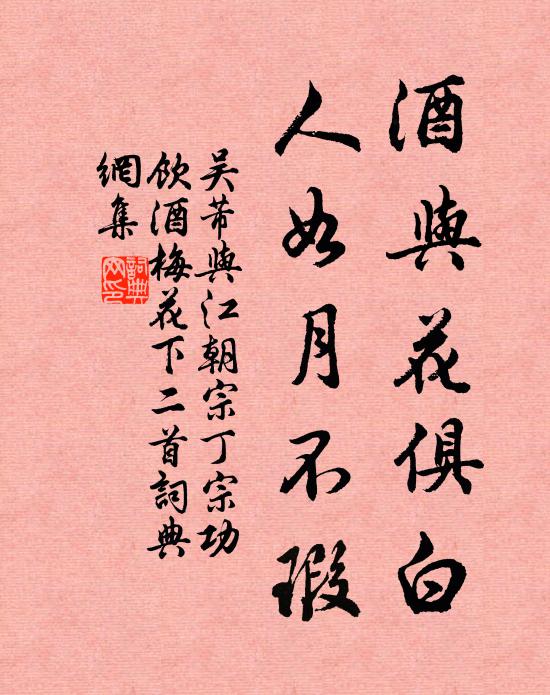 酒與花俱白
人如月不瑕
吳芾與江朝宗丁宗功
飲酒梅花下二首詞典
網集
詞典網印